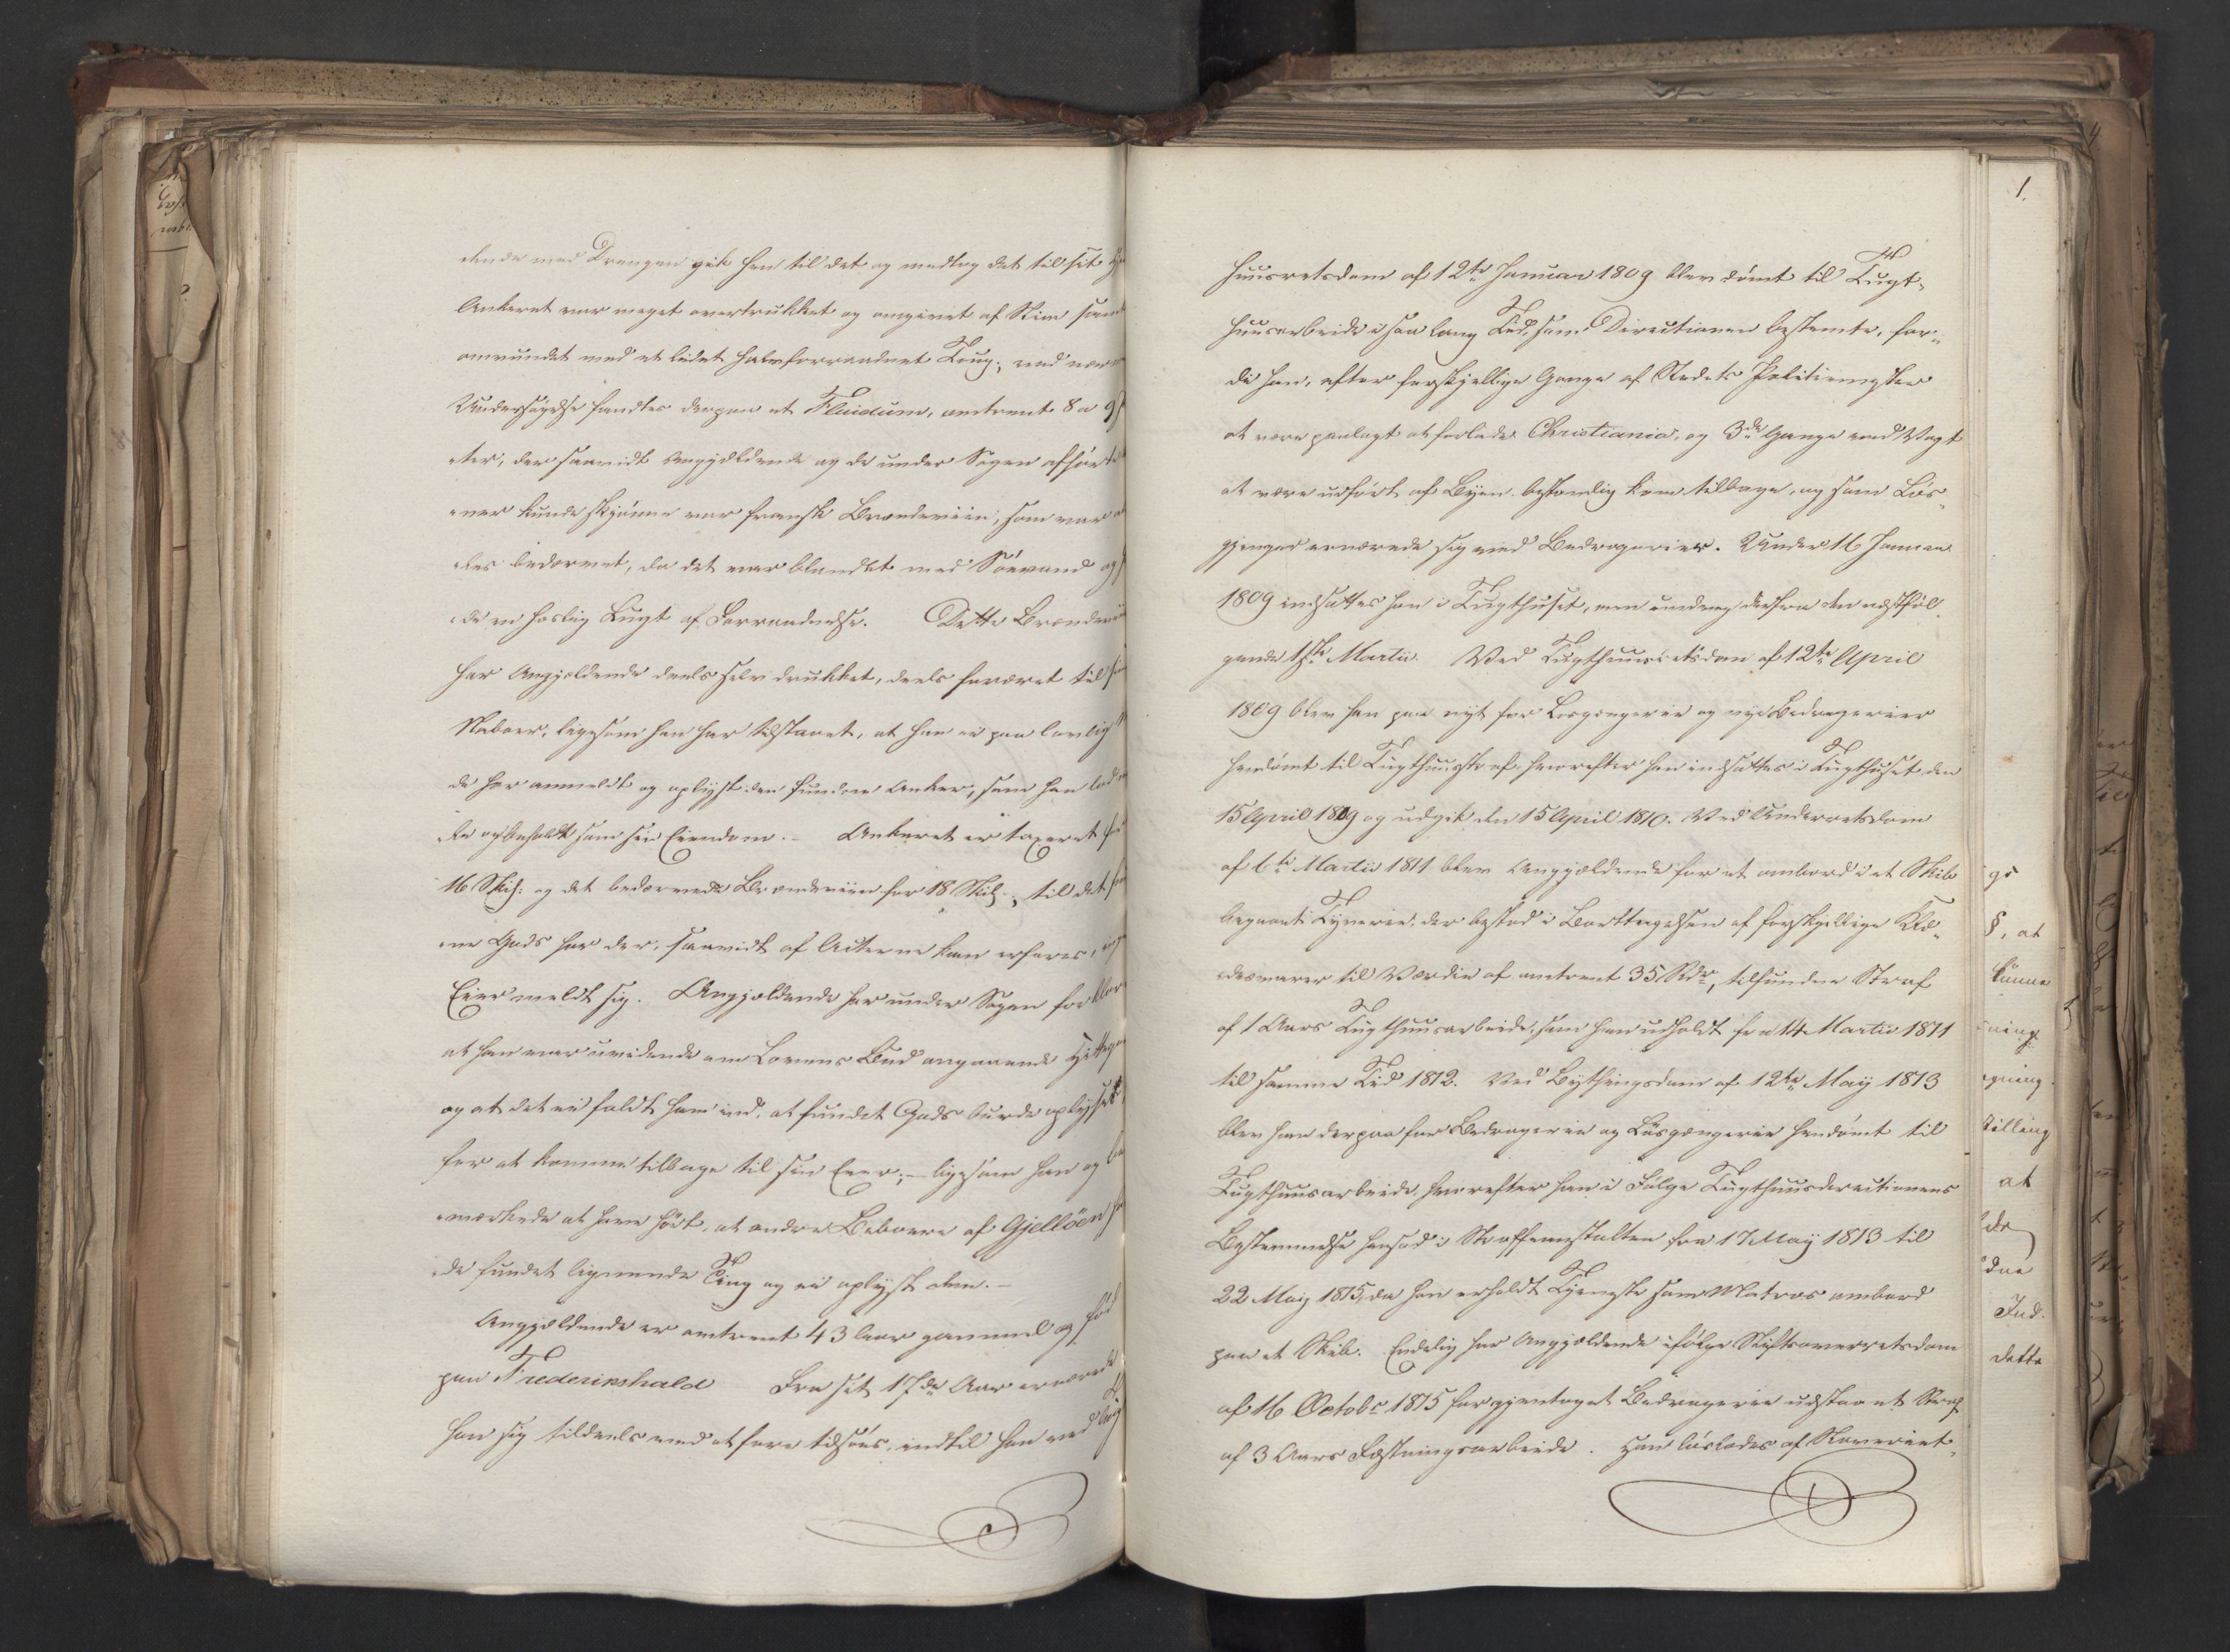 dende med Drengen gik hen til det og medtog det til sit
Ankeret var meget overtrukket og omgivet af Skim samt
omvundet med et lidet halvforraadnet Toug; ved nær
Undersøgelse fandtes derpaa et Fluidum, omtrent 8 a 9
ter, der saavidt Angjældende og de under Sagen afhørte
ner kunde skjønne var fransk Brændeviin, som var
des bedærvet, da det var blandet med Søevand og
de en heslig Lugt af Forraadnelse. Dette Brændevii
har Angjældende deels selv drukket, deels foræret til
Naboer, ligesom han har tilstaaet, at han ei paa lovlig
de har anmeldt og oplyst den fundne Anker, som han lod
de og beholdt som sin Eiendom. – Ankeret er taxeret
16 Skil: og det bedærvede Brændeviin for 18 Skil:, til det
ne Gods har der, saavidt af Acterne kan erfares,
Eier meldt sig. Angjældende har under Sagen forklar
at han var uvidende om Lovens Bud angaaende Hitte
og at det ei faldt ham ind, at fundet Gods burde oplyses
for at komme tilbage til sin Eier; – ligesom han og
mærkede at have hørt, at andre Beboere af Gjelløen
de fundet lignende Ting og ei oplyst dem. –
Angjældende er omtrent 43 Aar gammel og fød
paa Frederikshald Fra sit 17de Aar ernærede
han sig tildeels med at fare tilsøes, indtil han ved
1.
huusretsdom af 12te Januar 1809 blev dømt til Tugt-
huusarbeide i saa lang Tid, som Directionen bestemte, for-
di han, efter forskjellige Gange af Stedets Politiemester
at være paalagt at forlade Christiania, og 3de Gange med Vagt
at være udført af Byen bestandig kom tilbage, og som Løs-
gjænger ernærede sig med Bedragerier. Under 16 Januar
1809 indsattes han i Tugthuset, men undveg derfra den næstføl-
gende 1ste Martii. Ved Tugthuusretsdom af 12te April
1809 blev han paa nyt for Løsgængerie og nye Bedragerier
hendømt til Tugthuusstraf, hvorefter han indsattes i Tugthuset den
15 April 1809 og udgik den 15 April 1810. Ved Underretsdom
af 6te Martii 1811 blev Angjældende for et ombord i et Skib
begaaet Tyverie, der bestod i Borttagelsen af forskjellige Klæ-
desvarer til Værdie af omtrent 35 Rdr, tilfunden Straf
af 1 Aars Tugthuusarbeide, som han udholdt fra 14 Martii 1811
til samme Tid 1812. Ved Bythingsdom af 12te May 1813
blev han derpaa for Bedragerie og Løsgængerie hendømt til
Tugthuusarbeide, hvorefter han i Følge Tugthuusdirectionens
Bestemmelse hensad i Straffeanstalten fra 17 May 1813 til
22 May 1815, da han erholdt Tjeneste som Matros ombord
paa et Skib. Endelig har Angjældende ifølge Stiftsoverretsdom
af 16 Octobr 1815 for gjentaget Bedragerie udstaaet Straf
af 3 Aars Fæstningsarbeide. Han løslodes af Slaveriet
gs
§, at
kunne
ning
gning
stilling
at
de
dne
Ind-
dette